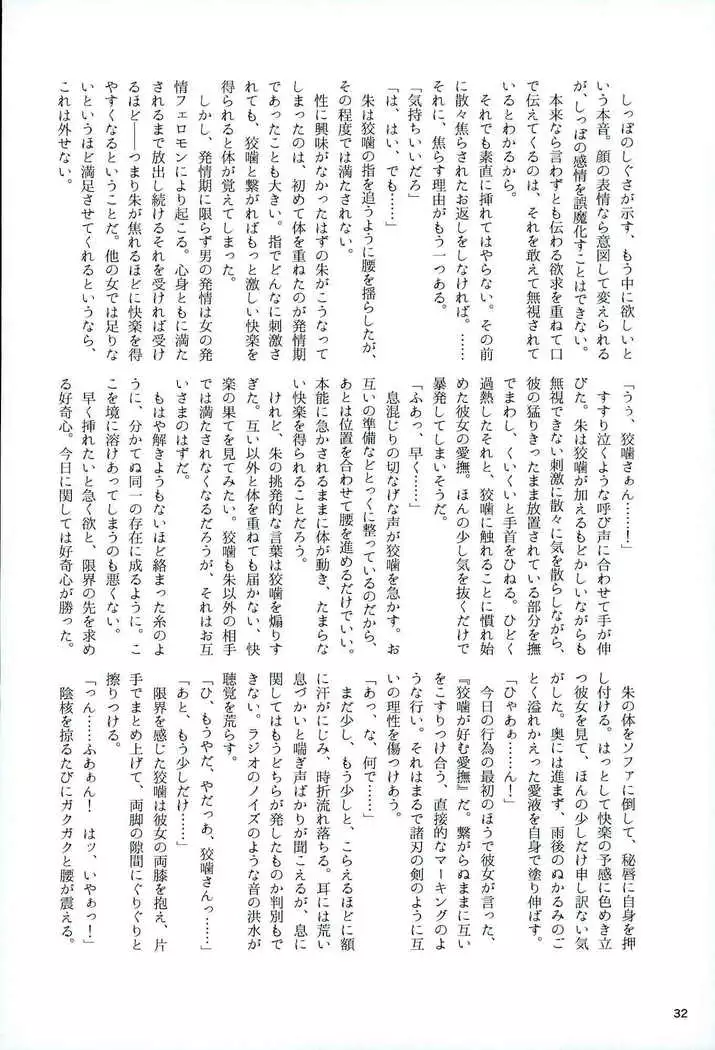 しっぽのしぐさが示す、もう中に欲しいと
いう本音。顔の表情なら意図して変えられる
が、しっぽの感情を誤魔化すことはできない。
本来なら言わずとも伝わる欲求を重ねて口
で伝えてくるのは、それを敢えて無視されて
いるとわかるから。
それでも素直に挿れてはやらない。その前
に散々焦らされたお返しをしなければ。……
それに、焦らす理由がもう一つある。
「気持ちいいだろ」
「は、はい、でも……」
朱は狡噛の指を追うように腰を揺らしたが、
その程度では満たされない。
性に興味がなかったはずの朱がこうなって
しまったのは、初めて体を重ねたのが発情期
であったことも大きい。指でどんなに刺激さ
れても、狡噛と繋がればもっと激しい快楽を
得られると体が覚えてしまった。
しかし、発情期に限らず男の発情は女の発
情フェロモンにより起こる。心身ともに満た
されるまで放出し続けるそれを受ければ受け
るほど――つまり朱が焦れるほどに快楽を得
やすくなるということだ。他の女では足りな
いというほど満足させてくれるというなら、
これは外せない。
「うぅ、狡噛さぁん……！」
すすり泣くような呼び声に合わせて手が伸
びた。朱は狡噛が加えるもどかしいながらも
無視できない刺激に散々に気を散らしながら、
彼の猛りきったまま放置されている部分を撫
でまわし、くいくいと手首をひねる。ひどく
過熱したそれと、狡噛に触れることに慣れ始
めた彼女の愛撫。ほんの少し気を抜くだけで
暴発してしまいそうだ。
「ふあっ、早く……」
息混じりの切なげな声が狡噛を急かす。お
互いの準備などとっくに整っているのだから、
あとは位置を合わせて腰を進めるだけでいい。
本能に急かされるままに体が動き、たまらな
い快楽を得られることだろう。
けれど、朱の挑発的な言葉は狡噛を煽りす
ぎた。互い以外と体を重ねても届かない、快
楽の果てを見てみたい。狡噛も朱以外の相手
では満たされなくなるだろうが、それはお互
いさまのはずだ。
もはや解きようもないほど絡まった糸のよ
うに、分かてぬ同一の存在に成るように。こ
こを境に溶けあってしまうのも悪くない。
早く挿れたいと急く欲と、限界の先を求め
る好奇心。今日に関しては好奇心が勝った。
朱の体をソファに倒して、秘唇に自身を押
し付ける。はっとして快楽の予感に色めき立
つ彼女を見て、ほんの少しだけ申し訳ない気
がした。奥には進まず、雨後のぬかるみのご
とく溢れかえった愛液を自身で塗り伸ばす。
「ひゃあぁ……ん！」
今日の行為の最初のほうで彼女が言った、
『狡噛が好む愛撫』だ。繋がらぬままに互い
をこすりつけ合う、直接的なマーキングのよ
うな行い。それはまるで諸刃の剣のように互
いの理性を傷つけあう。
「あっ、な、何で……」
まだ少し、もう少しと、こらえるほどに額
に汗がにじみ、時折流れ落ちる。耳には荒い
息づかいと喘ぎ声ばかりが聞こえるが、息に
関してはもうどちらが発したものか判別もで
きない。ラジオのノイズのような音の洪水が
聴覚を荒らす。
「ひ、もうやだ、やだっぁ、狡噛さんっ……」
「あと、もう少しだけ……」
限界を感じた狡噛は彼女の両膝を抱え、片
手でまとめ上げて、両脚の隙間にぐりぐりと
擦りつける。
「っん……ふあぁん！　はッ、いやぁっ！」
陰核を掠るたびにガクガクと腰が震える。
32